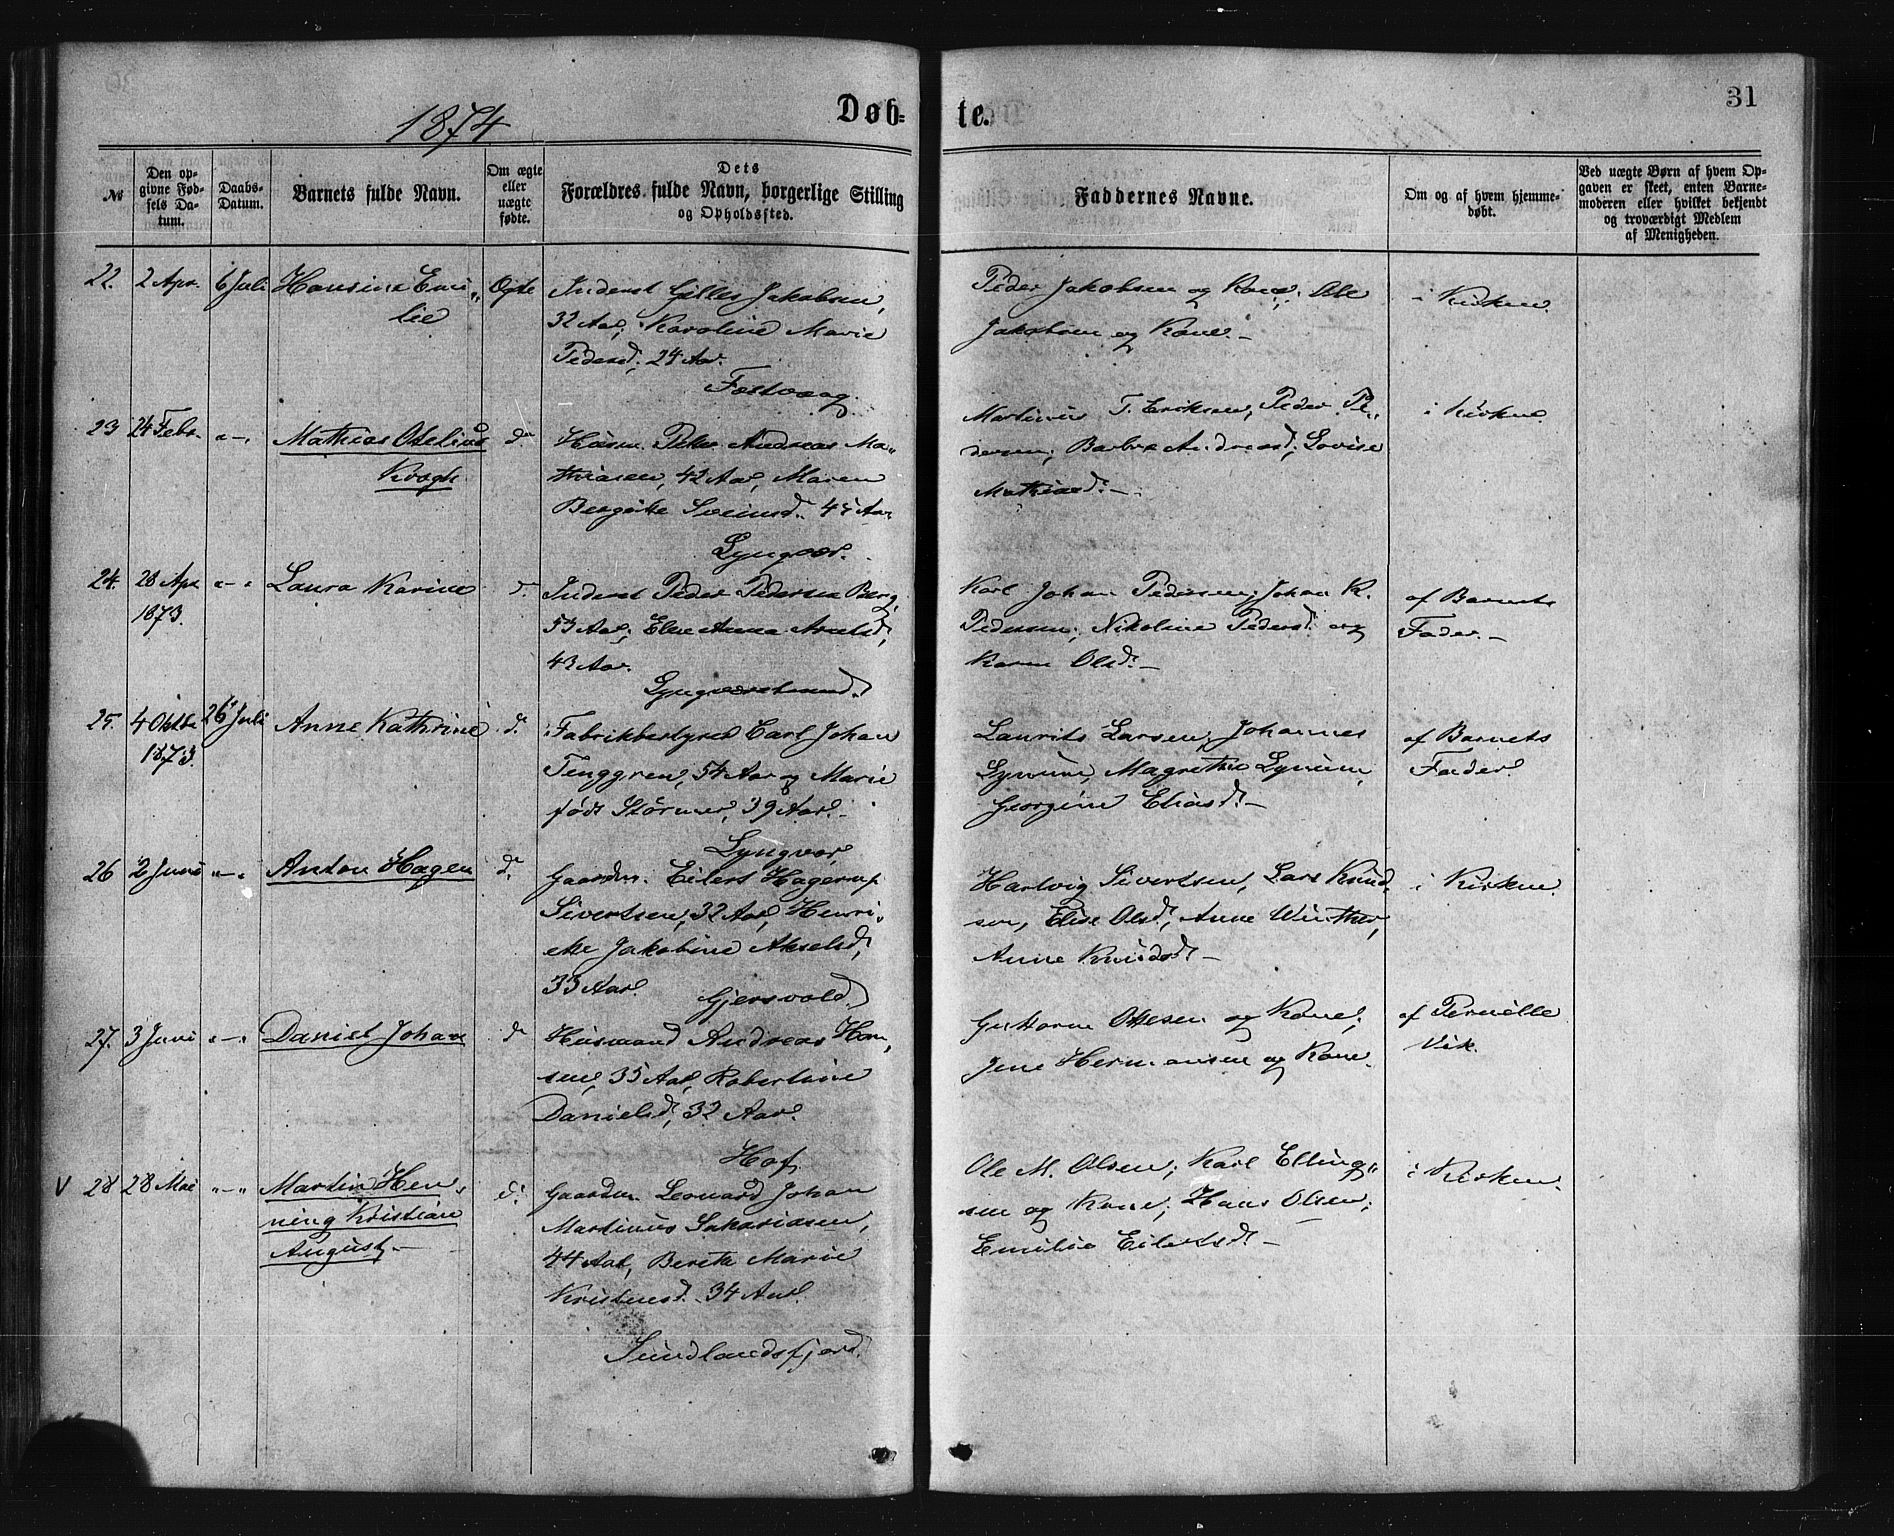 1874
Døb=
te.
31
№
Den op-
givne Fød-
sels Da-
tum.
Daabs-
Datum.
Barnets fulde Navn.
Om ægte
eller
uægte
fødte.
Dets
Forældres fulde Navn, borgerlige Stilling
og Opholdssted.
Faddernes Navne.
Om og af hvem hjemme-
døbt.
Ved uægte Børn af hvem Op-
gaven er skeet, enten Barne-
moderen eller hvilket bekjendt
og troværdigt Medlem
af Menigheden.
22. 2 Apr. 6 Juli Hansine Emi„
lie
Ægte
Inderst Gilles Jakobsen,
32 Aar, Karoline Marie
Pedersd. 24 Aar.
Festvaag.
Peder Jakobsen og Kone; Ole
Jakobsen og Kone.-
i Kirken.
23 24 Febr. „-„ Mathias Otelius
Krogh
do
Husm. Peter Andreas Ma„
thiasen, 42 Aar, Maren
Bergitte Sveinsd. 45 Aar
Lyngvær.
Martinus T. Eriksen, Peder Pe„
dersen; Barbra Andreasd; Lovise
Mathiasd.-
i Kirken.
24. 28 Apr.
1873.
„-„ Laura Karine
d.
Inderst Peder Pedersen Berg,
53 Aar, Elen Anna Arntsd,
43 Aar.
Lyngværstrand.
Karl Johan Pedersen; Johan K.
Pedersen; Nikoline Pedersd. og
Karen Olsd.-
af Barnets
Fader.-
25. 4 Oktbr
1873.
26 Juli Anne Kathrine
d.
Fabrikbestyrer Carl Johan
Tenggren, 54 Aar og Marie
født Stormer, 39 Aar.-
Lyngvær
Laurits Larsen, Johannes
Lynum, Magrethe Lynum,
Georgine Eliasd.-
af Barnets
Fader.
26 2 Juni „-„ Anton Hagen
d.
Gaardm. Eilert Hagerup
Sivertsen, 32 Aar, Henri„
ette Jakobine Akselsd,
33 Aar.
Gjersvold.
Hartvig Sivertsen, Lars Knud„
sen, Elise Olsd, Anne Winther,
Anne Knudsd.-
i Kirken.
27. 3 Juni „-„ Daniel Johan
d
Husmand Andreas Han„
sen, 35 Aar, Robertine
Danielsd, 32 Aar.
Hof.
Guttorm Ottesen og Kone;
Jens Hermansen og Kone.
af Pernille
Vik.
V 28 28 Mai „-„ Martin Hen„
ning Kristian
August.-
d.
Gaardm. Leonard Johan
Martinus Sakariasen,
44 Aar, Berita Marie
Kristensd. 34 Aar.
Sundlandsfjord.
Ole M. Olsen; Karl Elling„
sen og Kone; Hans Olsen;
Emilie Eilertsd.-
i Kirken.